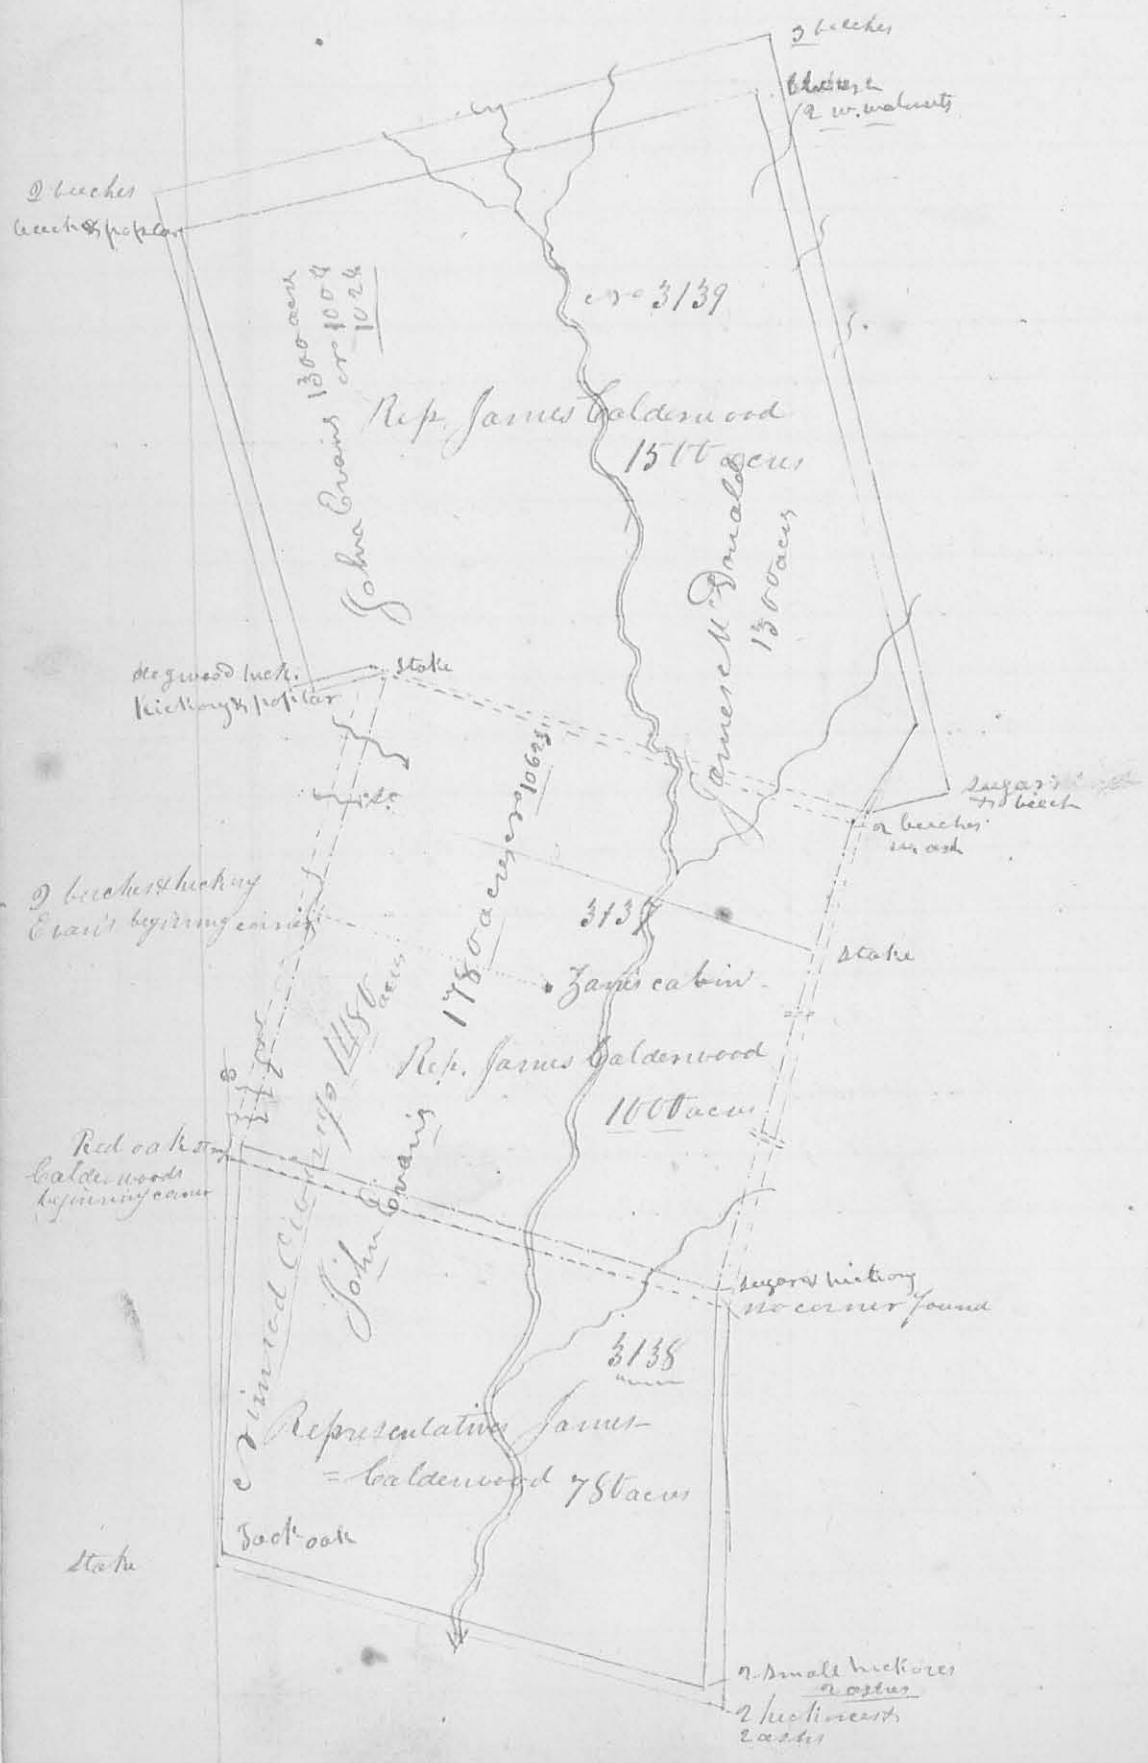 3 beeches
2 w. walnuts
2 beeches
beech & poplar
John Evans 1300 acres
no 1004
1024
no 3139
Rep. James Calderwood
1500 acres
James McDonald
1300 acres
dogwood
Stake
hickory & poplar
sugar &
beech
2 beeches
an ash
2 beeches & hickory
Evan's beginning corner
3137
Stake
Zanes cabin
John Evans 1780 acres no 10623
Rep. James Calderwood
1000 acres
1480 acres
Red oak
Calderwoods
beginning corner
sugar & hickory
no corner found
3138
Representatives James
= Calderwood 780 acres
Jack oak
Stake
2 small hickores
2 ashes
2 hickories &
2 ashes